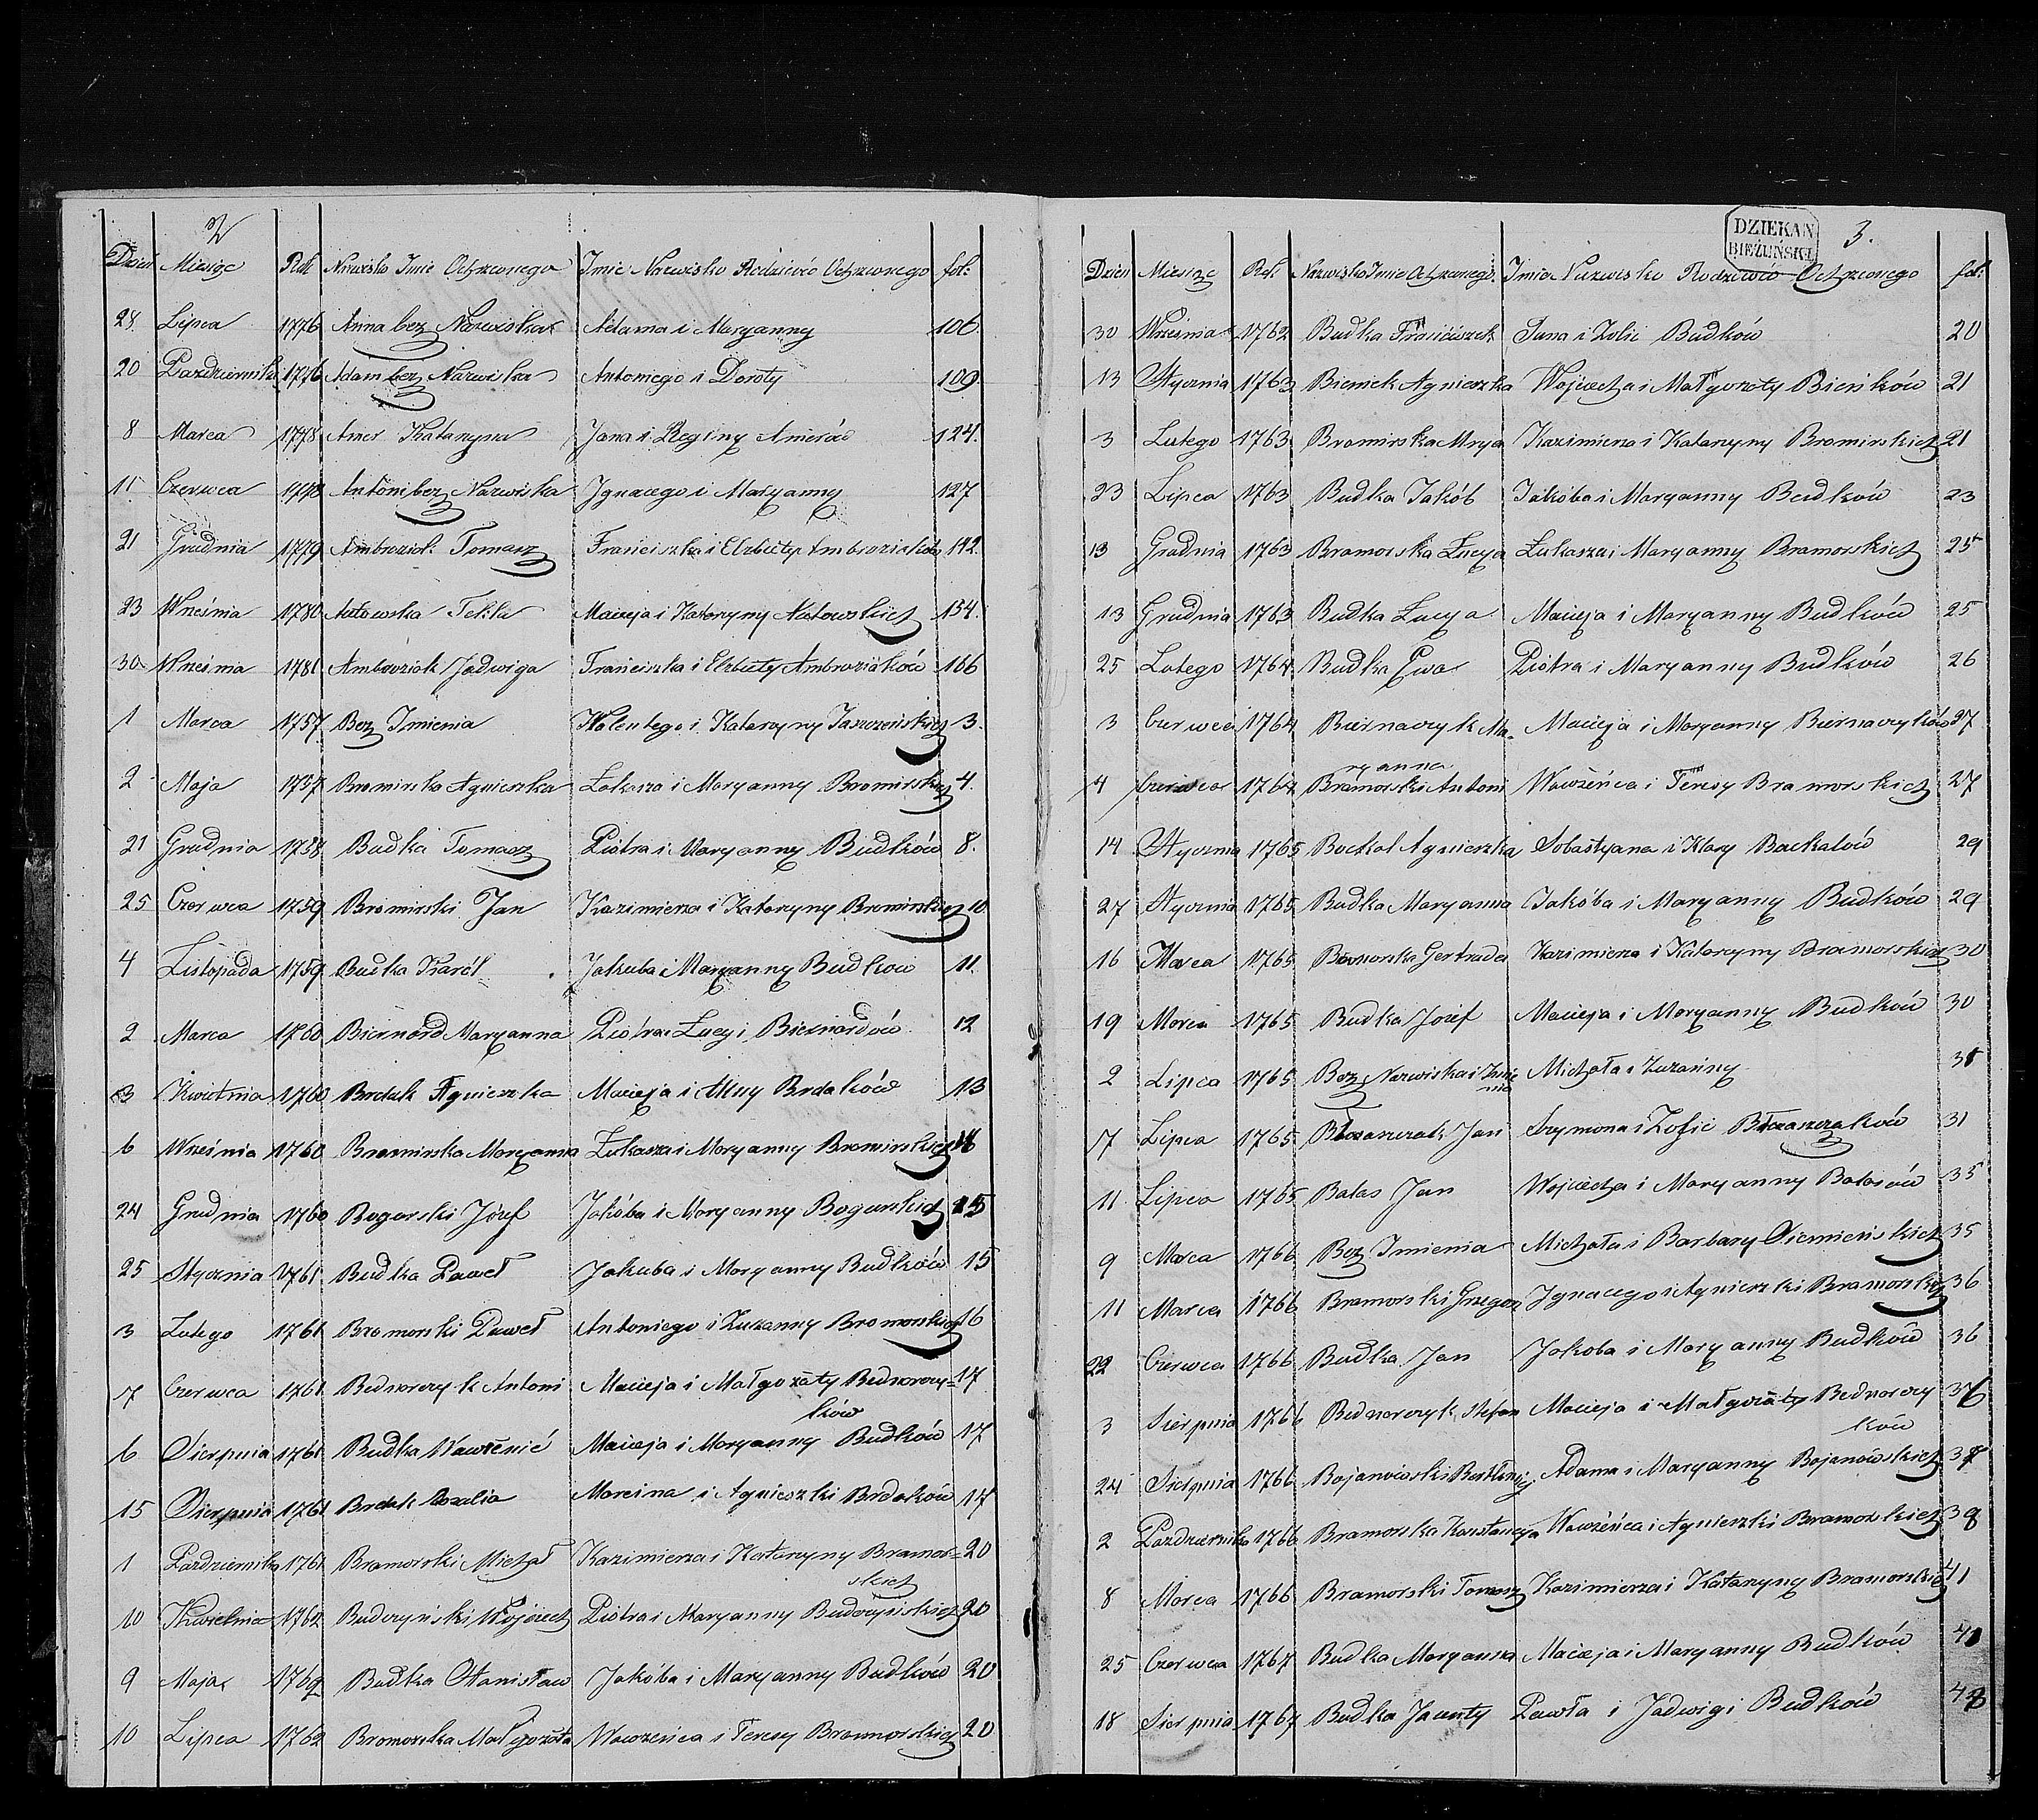 2
Dzień Miesiąc Rok Nazwisko Imie Ochrzconego Imie Nazwisko Rodziców Ochrzconego fol:
28. Lipca 1776 Anna bez Nazwiska Adama i Maryanny 106.
20 Pazdziernika 1776 Adam bez Nazwiska Antoniego i Doroty 109.
8 Marca 1778 Amer Katarzyna Jana i Reginy Amerów 124.
11 Czerwca 1778 Antoni bez Nazwiska Jgnacego i Maryanny 127
21 Grudnia 1779 Ambroziak Tomasz Franciszka i Elzbiety Ambroziaków 142.
23 Września 1780 Tekla Macieja i Katarzyny 154.
30 Września 1781 Ambroziak Jadwiga Franciszka i Elzbiety Ambroziaków 166
1 Marca 1757 Bez Imienia Walentego i Katarzyny 3.
2 Maja 1757 Bromirska Agnieszka Łukasza i Maryanny Bromirskich 4.
21 Grudnia 1758 Budka Tomasz Piotra i Maryanny Budków 8.
25 Czerwca 1759 Bromirski Jan Kazimierza i Katarzyny Bromirskich 10
4 Listopada 1759 Budka Karól Jakuba i Maryanny Budkow 11.
2 Marca 1760 Biernard Maryanna Piotra i Lucyi Biernardów 12
3 Kwietnia 1760 Brdak Agnieszka Macieja i Anny Brdaków 13
6 Września 1760 Bromirska Maryanna Łukasza i Maryanny Bromirskich 14
24 Grudnia 1760 Bogurski Józef Jakóba i Maryanny Bogurskich 15
25 Stycznia 1761 Budka Paweł Jakuba i Maryanny Budków 15
3 Lutego 1761 Bromorski Paweł Antoniego i Zuzanny Bromorskich 16
7 Czerwca 1761 Bednarczyk Antoni Macieja i Małgorzaty Bednarczy= 17
ków
6 Sierpnia 1761 Budka Wawrzeniec Macieja i Maryanny Budków 17
15 Sierpnia 1761 Brdak Rozalia Marcina i Agnieszki Brdaków 17
1 Pazdziernika 1761 Bramorski Michał Kazimierza i Katarzyny Bramor= 20
skich
10 Kwietnia 1762 Budczyński Wojciech Piotra i Maryanny Budczyńskich 20
9 Maja 1762 Budka Stanisław Jakóba i Maryanny Budków 20
10 Lipca 1762 Bromorska Małgorzata Wawrzeńca i Teresy Bromorskich 20
DZIEKAN
BIEŻUŃSKI
3.
Dzień Miesiąc Rok Nazwisko Imie Ochrzconego. Imie Nazwisko Rodziców Ochrzconego fol:
30 Września 1762 Budka Franciszek Jana i Zofii Budków 20
13 Stycznia 1763 Bieniek Agnieszka Wojciecha i Małgorzaty Bieńków 21
3 Lutego 1763 Bromirska Mrya Kazimierza i Katarzyny Bromirskich 21
23 Lipca 1763 Budka Jakób Jakóba i Maryanny Budków 23
13 Grudnia 1763 Bramorska Łucya Łukasza i Maryanny Bramorskich 25
13 Grudnia 1763 Budka Łucya Macieja i Maryanny Budków 25
25 Lutego 1764 Budka Ewa Piotra i Maryanny Budków 26
3 Czerwca 1764 Biernaczyk Ma= Macieja i Maryanny Biernaczyków 27
ryanna
4 Czerwca 1764 Bramorski Antoni Wawrzeńca i Teresy Bramorskich 27
14 Stycznia 1765 Backal Agnieszka Sobastyana i Klary Backalów 29
27 Stycznia 1765 Budka Maryanna Jakóba i Maryanny Budków 29
16 Marca 1765 Bramorska Gertruda Kazimierza i Katarzyny Bramorskich 30
19 Marca 1765 Budka Józef Macieja i Maryanny Budków 30
2 Lipca 1765 Bez Nazwiska i Imie Michała i Zuzanny 31
nia
7 Lipca 1765 Błaszczak Jan Szymona i Zofii Błaszczaków 31
11 Lipca 1765 Balas Jan Wojciecha i Maryanny Balasów 35
9 Marca 1766 Bez Imienia Michała i Barbary Siemieńskich 35
11 Marca 1766 Bramorski Grzegorz Jgnacego i Agnieszki Bramorskich 36
22 Czerwca 1766 Budka Jan Jakoba i Maryanny Budków 36
3 Sierpnia 1766 Bednarczyk Stefan Macieja i Małgorzaty Bednarczy 36
ków
24 Sierpnia 1766 Bojanowski Bartłomiej Adama i Maryanny Bojanowskich 37
2 Pazdziernika 1766 Bramorska Konstancya Wawrzeńca i Agnieszki Bramorskich 38
8 Marca 1766 Bramorski Tomasz Kazimierza i Katarzyny Bramorskich 41
25 Czerwca 1767 Budka Maryanna Macieja i Maryanny Budków
18 Sierpnia 1767 Budka Jacenty Pawła i Jadwigi Budków